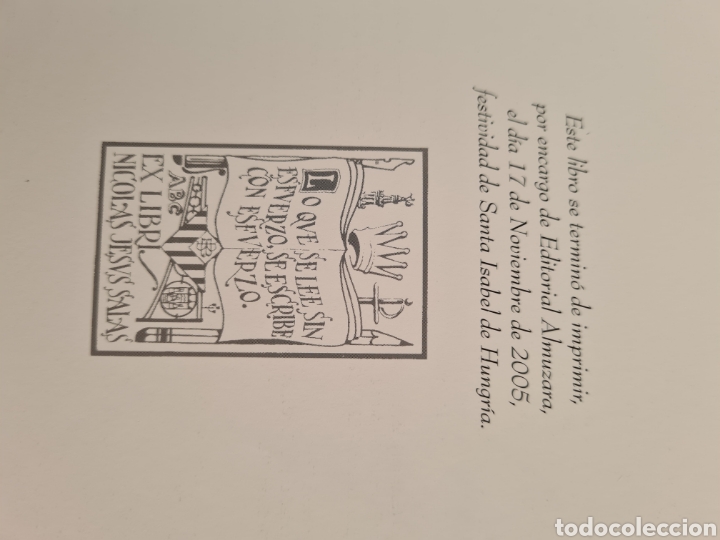 Este libro se terminó de imprimir,
por encargo de Editorial Almuzara,
el día 17 de Noviembre de 2005,
festividad de Santa Isabel de Hungría.
LO QVE SE LEE SIN
ESFVERZO, SE ESCRIBE
CON ESFVERZO.
ABC
EX LIBRI
NICOLAS JESVS SALAS
todocoleccion